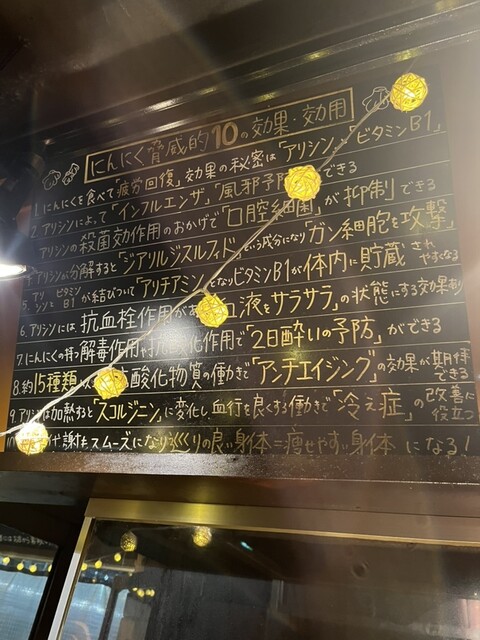 にんにく脅威的10の効果・効用
1. にんにくを食べて「疲労回復」効果の秘密は「アリシン」「ビタミンB1」
2. アリシンによって「インフルエンザ」「風邪予防」できる
アリシンの殺菌効作用のおかげで「口腔細菌」が抑制できる
アリシンが分解すると「ジアリルジスルフィド」という成分になり「ガン細胞を攻撃」
5. アリシンとビタミンB1が結びついて「アリチアミン」となりビタミンB1が体内に貯蔵されやすくなる
6. アリシンには抗血栓作用があ 血液をサラサラ」の状態にする効果あり
7. にんにくの持つ解毒作用 酸化作用で「2日酔いの予防」ができる
8. 約15種類以 酸化物質の働きで「アンチエイジング」の効果が期待できる
9. アリシンは加熱すると「スコルジニン」に変化し血行を良くする働きで「冷え症」の改善に役立つ
代謝もスムーズになり巡りの良い身体=痩せやすい身体になる!